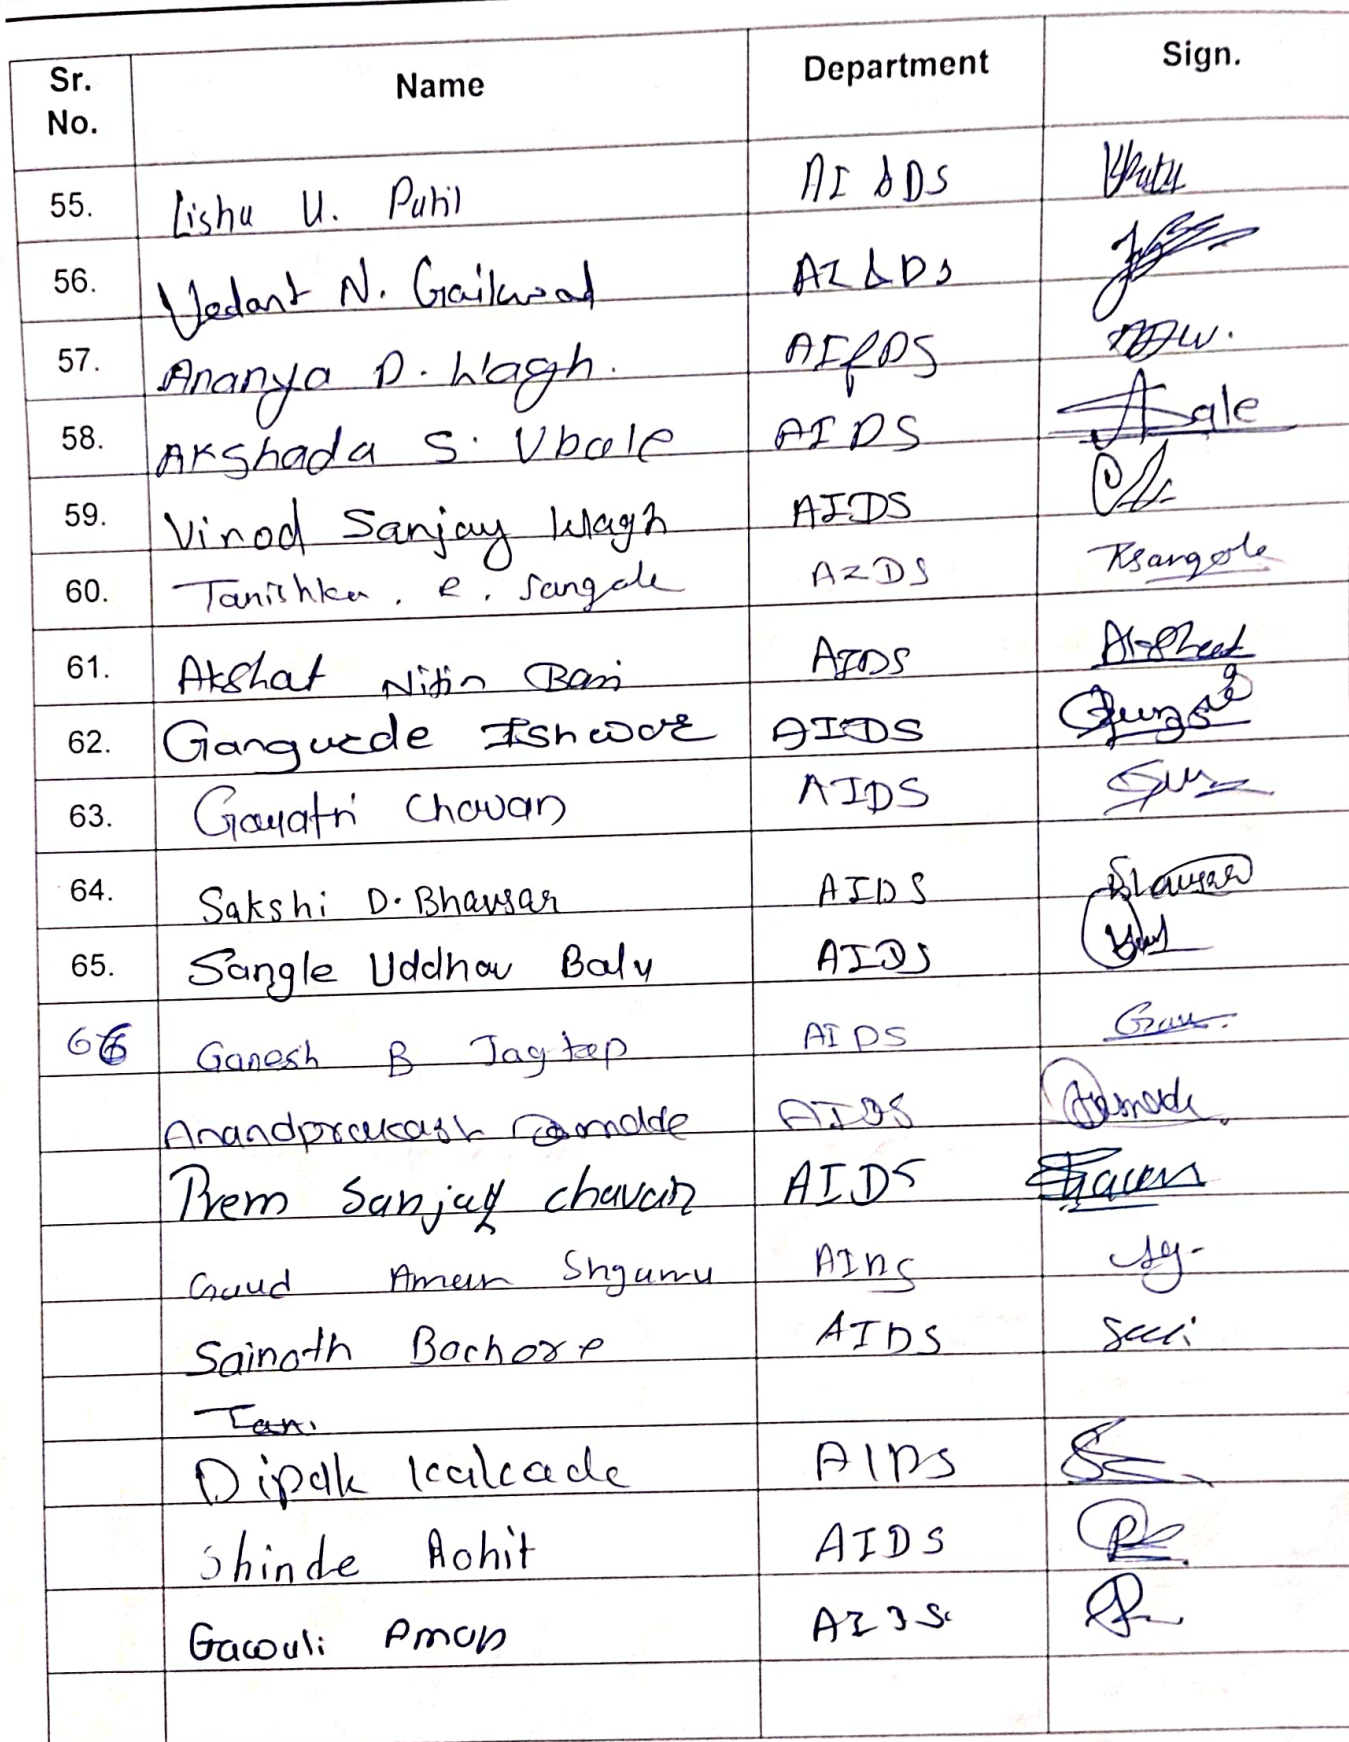 Sr. No. Name Department Sign.
55. Lishu U. Patil AI & DS
56. Vedant N. Gaikwad AI & DS
57. Ananya D. Wagh. AI&DS
58. Akshada S. Ubale AIDS
59. Vinod Sanjay Wagh AIDS
60. Tanishka . R . Sangale AIDS
61. Akshat Nitin Bari AIDS
62. Gangurde Ishwar AIDS
63. Gayatri Chavan AIDS
64. Sakshi D. Bhavsar AIDS Bhavsar
65. Sangle Uddhav Balu AIDS
66 Ganesh B Jagtap AIDS
Anandprakash AIDS
Prem Sanjay Chavan AIDS
Gaud Aman AIDS
Sainath Bochore AIDS
Tan.
Dipak Kalcade AIDS
Shinde Rohit AIDS
Gawali Aman AIDS